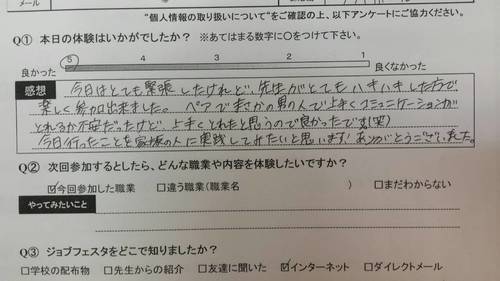 メール
"個人情報の取り扱いについて"をご確認の上、以下アンケートにご協力ください。
Q① 本日の体験はいかがでしたか? ※あてはまる数字に○をつけて下さい。
良かった 5 4 3 2 1 良くなかった
感想
今日はとても緊張したけれど、先生がとてもハキハキした方で
楽しく参加出来ました。ペアでまさかの男の人で上手くコミュニケーションが
とれるか不安だったけど、上手くとれたと思うので良かったです(笑)
今日行ったことを家族の人に実践してみたいと思います! ありがとうございました。
Q② 次回参加するとしたら、どんな職業や内容を体験したいですか?
☑今回参加した職業 □違う職業(職業名 ) □まだわからない
やってみたいこと
Q③ ジョブフェスタをどこで知りましたか?
□学校の配布物 □先生からの紹介 □友達に聞いた ☑インターネット □ダイレクトメール